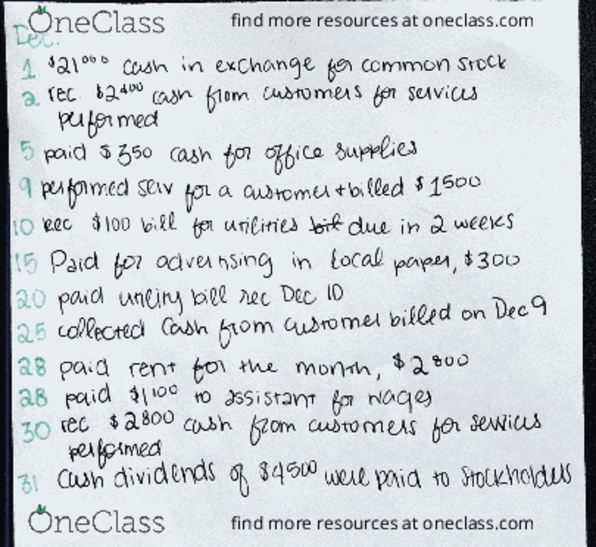 OneClass find more resources at oneclass.com
Dec.
1 $21000 cash in exchange for common stock
2 rec $2400 cash from customers for services
performed
5 paid $350 cash for office supplies
9 performed serv for a customer + billed $1500
10 Rec $100 bill for utilities due in 2 weeks
15 Paid for advertising in local paper, $300
20 paid utility bill rec Dec 10
25 collected Cash from customer billed on Dec 9
28 paid rent for the month, $2800
28 paid $1100 to assistant for wages
30 rec $2800 cash from customers for services
performed
31 Cash dividends of $4500 were paid to Stockholders
OneClass find more resources at oneclass.com